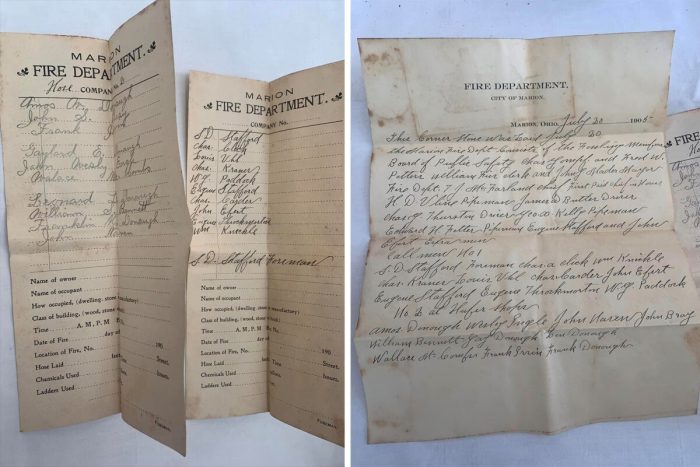 MARION
FIRE DEPARTMENT.
Hose COMPANY No. 2
John
Frank
Gaylord Donough
John Wesly
Walace
Leonard Donough
William Bennett
Franklin Donough
John
Name of owner
Name of occupant
How occupied, (dwelling, store, manufactory)
Class of building, (wood, stone
Time A. M., P. M.
Date of Fire day of
Location of Fire, No.
Hose Laid
Chemicals Used
Ladders Used
MARION
FIRE DEPARTMENT.
COMPANY No.
S. D. Stafford
Chas. Clark
Louis Uhl
Chas. Kraner
W. G. Paddock
Eugene Stafford
Chas. Carder
John Efert
Eugene Throckmorton
Wm Knickle
S. D. Stafford Foreman
Name of owner
Name of occupant
How occupied, (dwelling, store
Class of building, (wood, stone
Time A. M., P. M.
Date of Fire day of 190
Location of Fire, No. Street.
Hose Laid feet.
Chemicals Used
Ladders Used
FOREMAN.
FIRE DEPARTMENT.
CITY OF MARION.
MARION, OHIO, July 20 1905
This Corner Stone was Laid July 20
The Marion Fire Dept Consists of the Following
Board of Public Safety Chas and Fred W.
Peters William clerk and John Mayor
Fire Dept. T J McFarland chief First Asst chief
H D Uhl Pipeman James Butler Driver
Chas J Thurston Driver Pipeman
Edward H Fetter Pipeman Eugene Stafford and John
Efert Extra men
Call men No 1
S. D. Stafford Foreman Chas a clark Wm Knickle
Chas. Kraner Louis Uhl chas Carder John Efert
Eugene Stafford Eugene Throckmorton W. G Paddock
No 2 at Hufer Shops
Amos Donough Wesly John Waren John Bray
William Bennett Gay Donough Donough
Wallace Frank Irvin Frank Donough